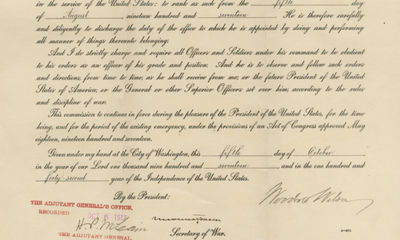 in the service of the United States; to rank as such from the fifth day
of August, nineteen hundred and seventeen. He is therefore carefully
and diligently to discharge the duty of the office to which he is appointed by doing and performing
all manner of things thereunto belonging.
And I do strictly charge and require all Officers and Soldiers under his command to be obedient
to his orders as an officer of his grade and position. And he is to observe and follow such orders
and directions, from time to time, as he shall receive from me, or the future President of the United
States of America, or the General or other Superior Officers set over him, according to the rules
and discipline of war.
This commission to continue in force during the pleasure of the President of the United States, for the time
being, and for the period of the existing emergency, under the provisions of an Act of Congress approved May
eighteen, nineteen hundred and seventeen.
Given under my hand at the City of Washington, this fifth day of October
in the year of our Lord one thousand nine hundred and seventeen and in the one hundred and
forty second year of the Independence of the United States.
By the President:
Woodrow Wilson
THE ADJUTANT GENERAL'S OFFICE.
RECORDED OCT 5 1917
H. P. McCain
THE ADJUTANT GENERAL.
Secretary of War.